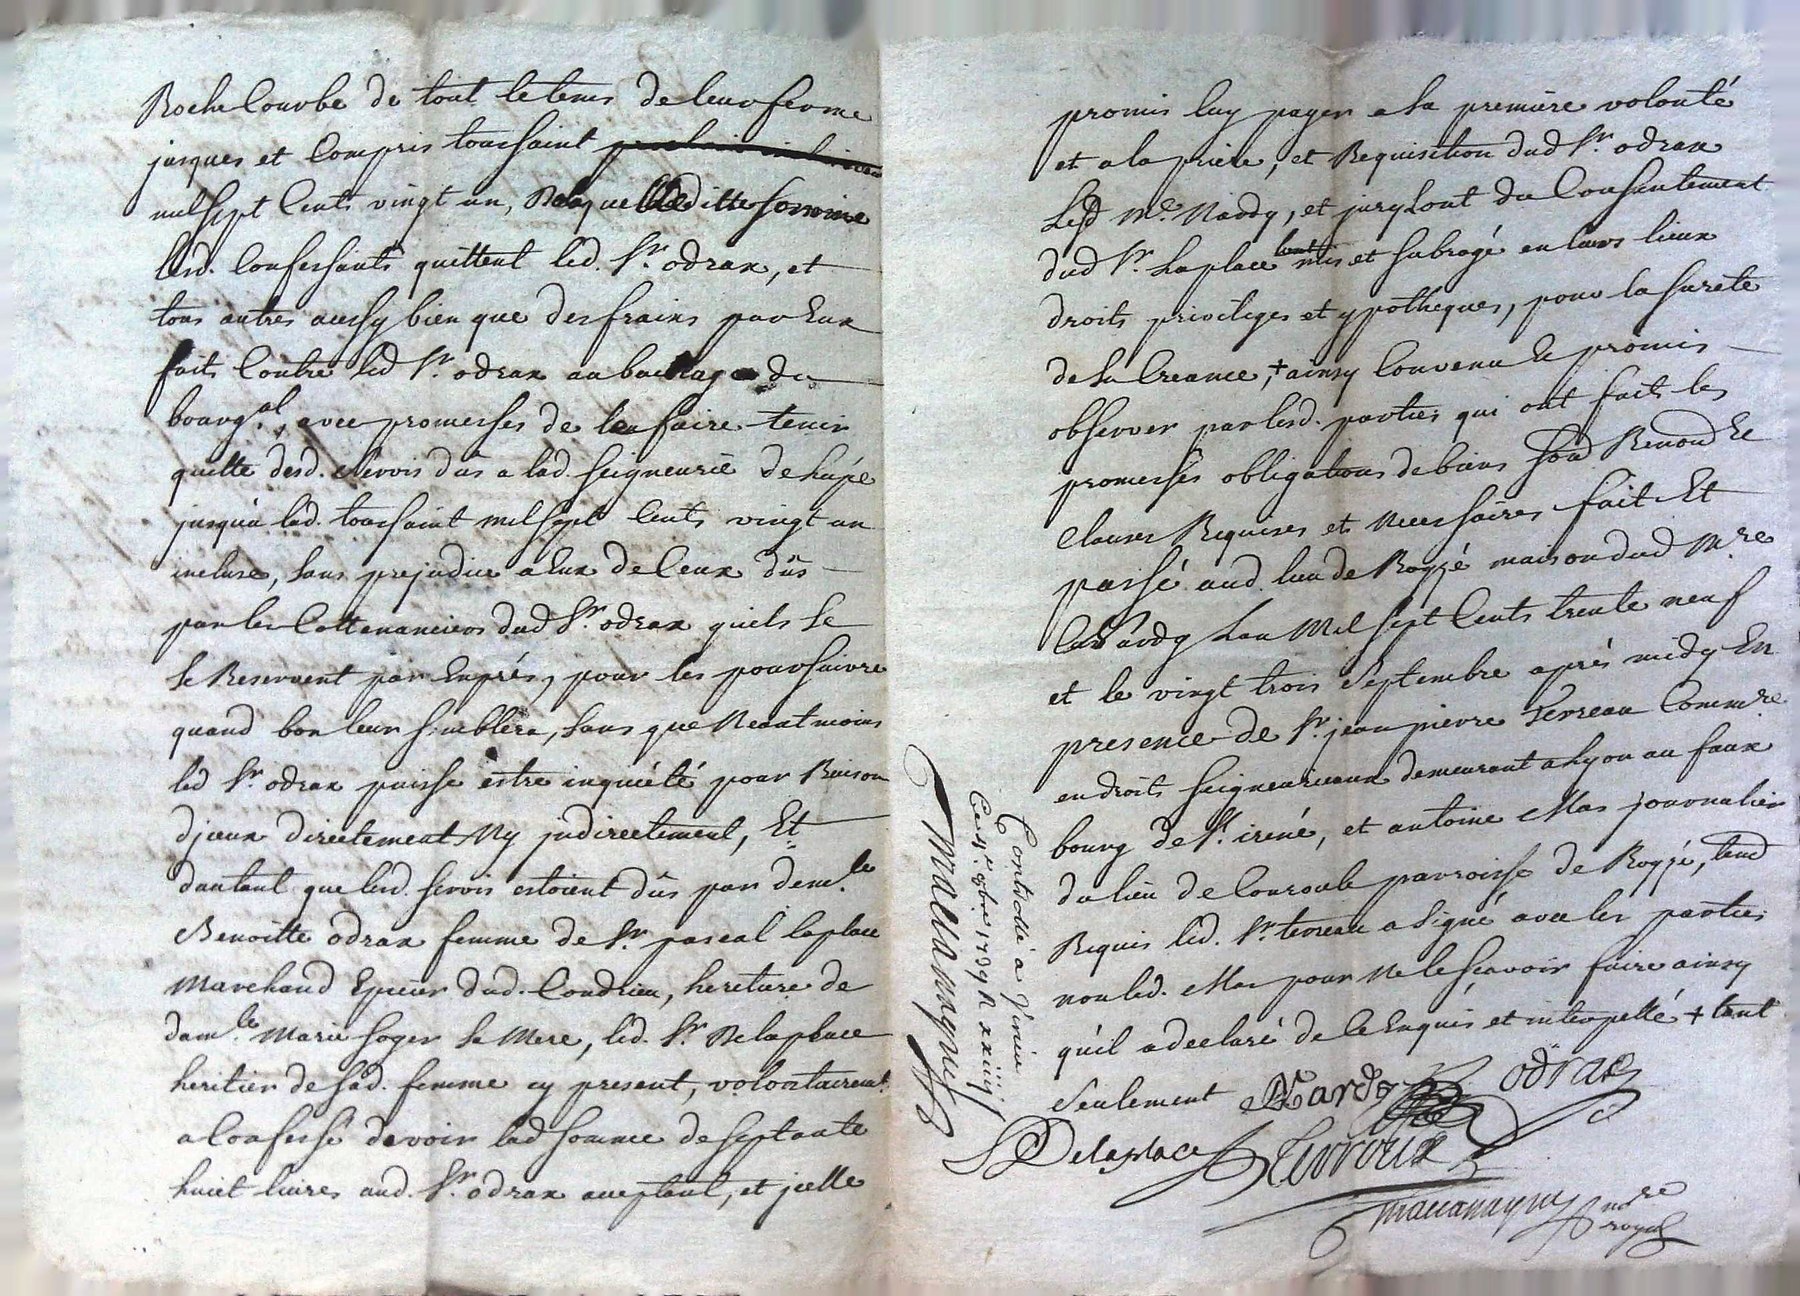 Roche Courbe de tout le tems de leur ferme
jusques et Compris toussaint
mil sept Cents vingt un, De laquelle ditte somme
lesd. Confessants quittent led. Sr. odrax, et
tous autres aussy bien que des fraix par Eux
faits Contre led Sr. odrax au bailliage de
bourg.al, avec promesses de l'en faire tenir
quitte desd. servis dûs a lad. seigneurie de lupé
jusqu'a lad. toussaint mil sept Cents vingt un
incluse, sans prejudice a Eux de Ceux dûs
par les Cottenanciers dud Sr. odrax qu'ils se
se Reservent par Exprés, pour les poursuivre
quand bon leur semblera, sans que Neantmoins
led Sr. odrax puisse estre inquiété pour Raison
d'jceux directement Ny jndirectement, Et
d'autant que lesd. servis estoient dûs par dem.le
Benoitte odrax femme de Sr. pascal laplace
Marchand Epicier dud. Condrieu, heritiere de
dam.le Marie soger sa Mere, led. Sr. Delaplace
heritier de sad. femme cy present, volontairemt.
a Confessé devoir lad somme de septante
huict livres aud. Sr. odrax acceptant, et jcelle
promis luy payer a sa premiere volonté
et a la priere, et Requisition dud Sr. odrax
Led Me. Nardy, et jceux ont du Consentement
dud Sr. Laplace l'ont mis et subrogé en leurs lieux
droits privileges et ypotheques, pour la sureté
de sa Creance, + ainsy Convenu Et promis
observer par lesd. parties qui ont faits les
promesses obligations de biens soûd Renond Et
Clauses Requises et Necessaires fait Et
passé aud. lieu de Royzé maison dud Mre
Nardy L'an Mil sept Cents trente neuf
et le vingt trois septembre aprés midy En
presence de Sr. jean pierre terreau Commre
en droits seigneuriaux demeurant a Lyon au faux
bourg de St. irené, et antoine Mas journalier
du lieu de parroisse de Royzé,
Requis led. Sr. terreau a signé avec les parties
non led. Mas pour Ne le sçavoir faire ainsy
qu'il a declaré de Ce Enquis et interpellé + tant
seulement Nardy odrax
Delaplace terreau
maccanagny nore royal
Controllé a Virieu
Ce 4e. 8bre 1739 R xxiiij s
maccanagny